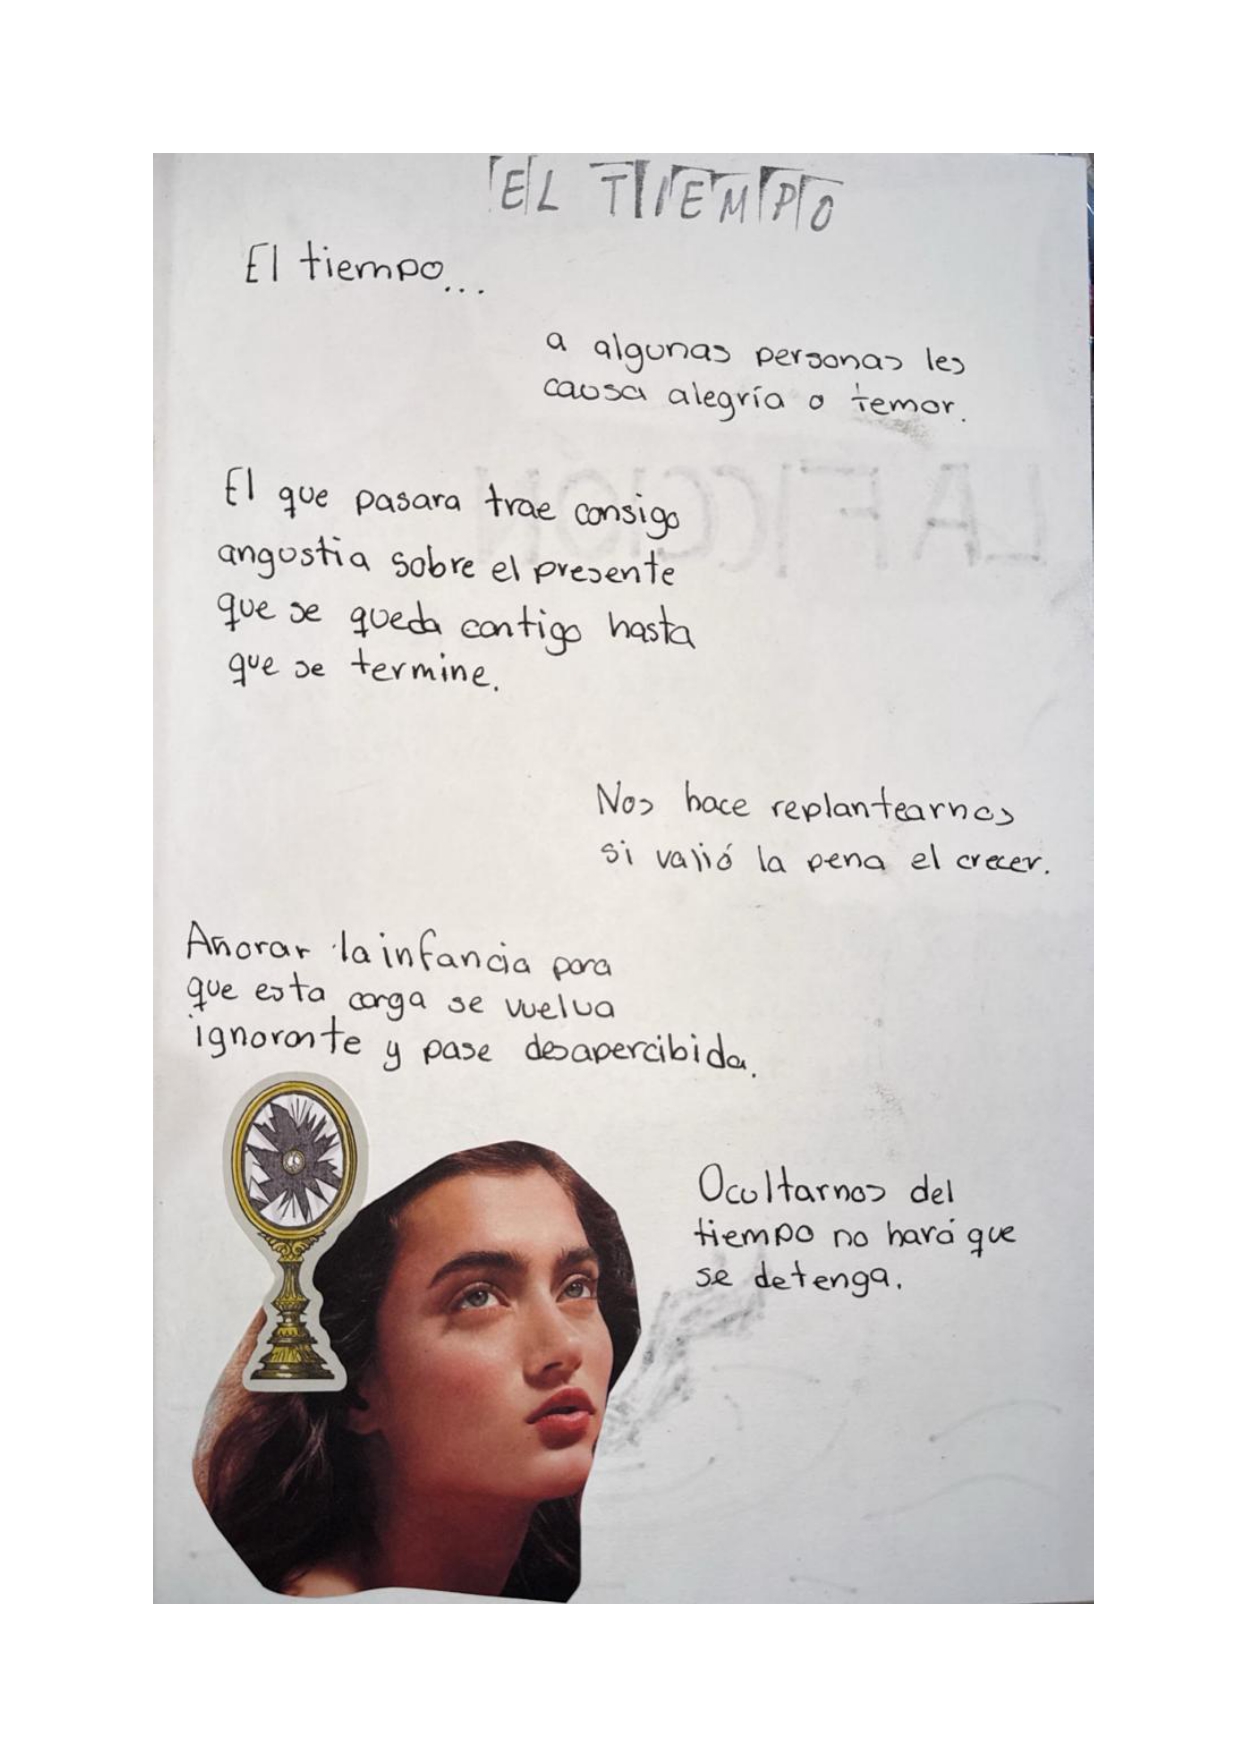 EL TIEMPO
El tiempo...
a algunas personas les
causa alegría o temor.
El que pasara trae consigo
angustia sobre el presente
que se queda contigo hasta
que se termine.
Nos hace replantearnos
si valió la pena el crecer.
Añorar la infancia para
que esta carga se vuelva
ignorante y pase desapercibida.
Ocultarnos del
tiempo no hará que
se detenga.
LA FICCIÓN